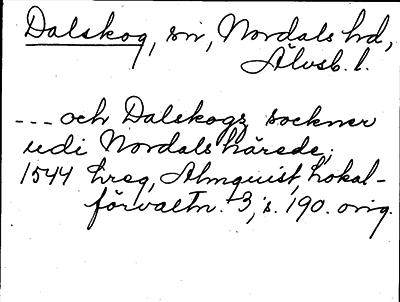 Dalskog, sn, Nordals hd,
Älvsb. l.
--- och Dalskogz sockner
udi Nordals härede;
1544 hreg, Almquist, Lokal-
förvaltn. 3, s. 190. orig.